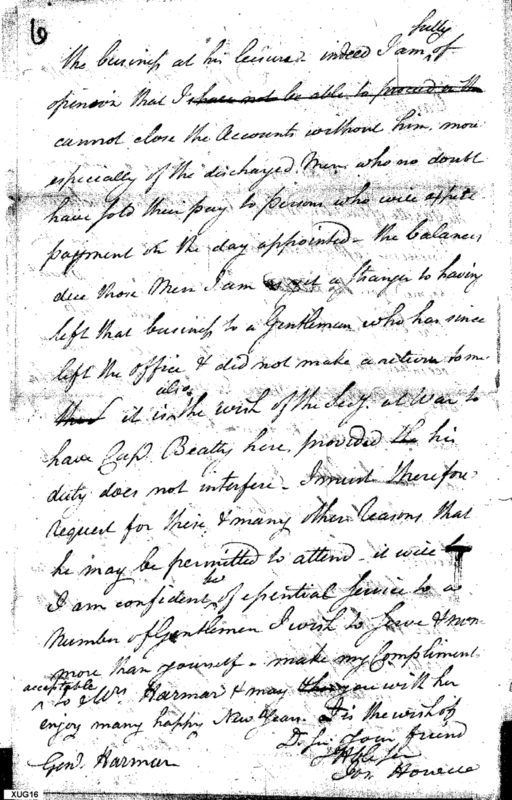 6
the business at his leisure indeed I am fully of
opinion that I shall not be able to proceed in the
cannot close the Accounts without him, more
especially of the discharged Men who no doubt
have sold their pay to persons who will expect
payment on the day appointed - the balances
due those Men I am yet a Stranger to having
left that business to a Gentleman who has since
left the office & did not make a return to me
it is also the wish of the Secy. at War to
have Cap. Beatty here, provided his
duty does not interfere - I must therefore
request for these & many other Reasons that
he may be permitted to attend - it will
I am confident be of essential service to a
Number of Gentlemen I wish to serve & non
more than yourself - make my Compliment
acceptable to Mrs. Harmar & may you with her
enjoy many happy New Years. Is the wish of
Dr. Sir Your friend
& Hble Sr
Jos. Howell
Genl. Harmar
XUG16